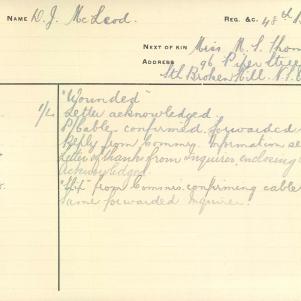 NAME D. J. McLeod. REG. &C. 48th
NEXT OF KIN Miss M. S. Thom
ADDRESS 96 Piper Stree
Sth Broken Hill. N.S.
"Wounded"
Letter acknowledged
P/Cable confirmed. forwarded
Reply from Commrs. Information se
Letter of thanks from Inquirer, enclosing
Acknowledged.
from Commis. confirming cable
Same forwarded Inquirer.